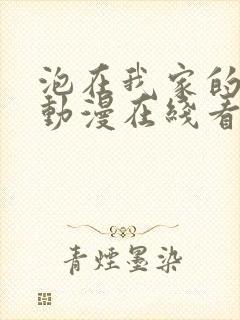 泡在我家的
動漫在綫看
青煙墨染